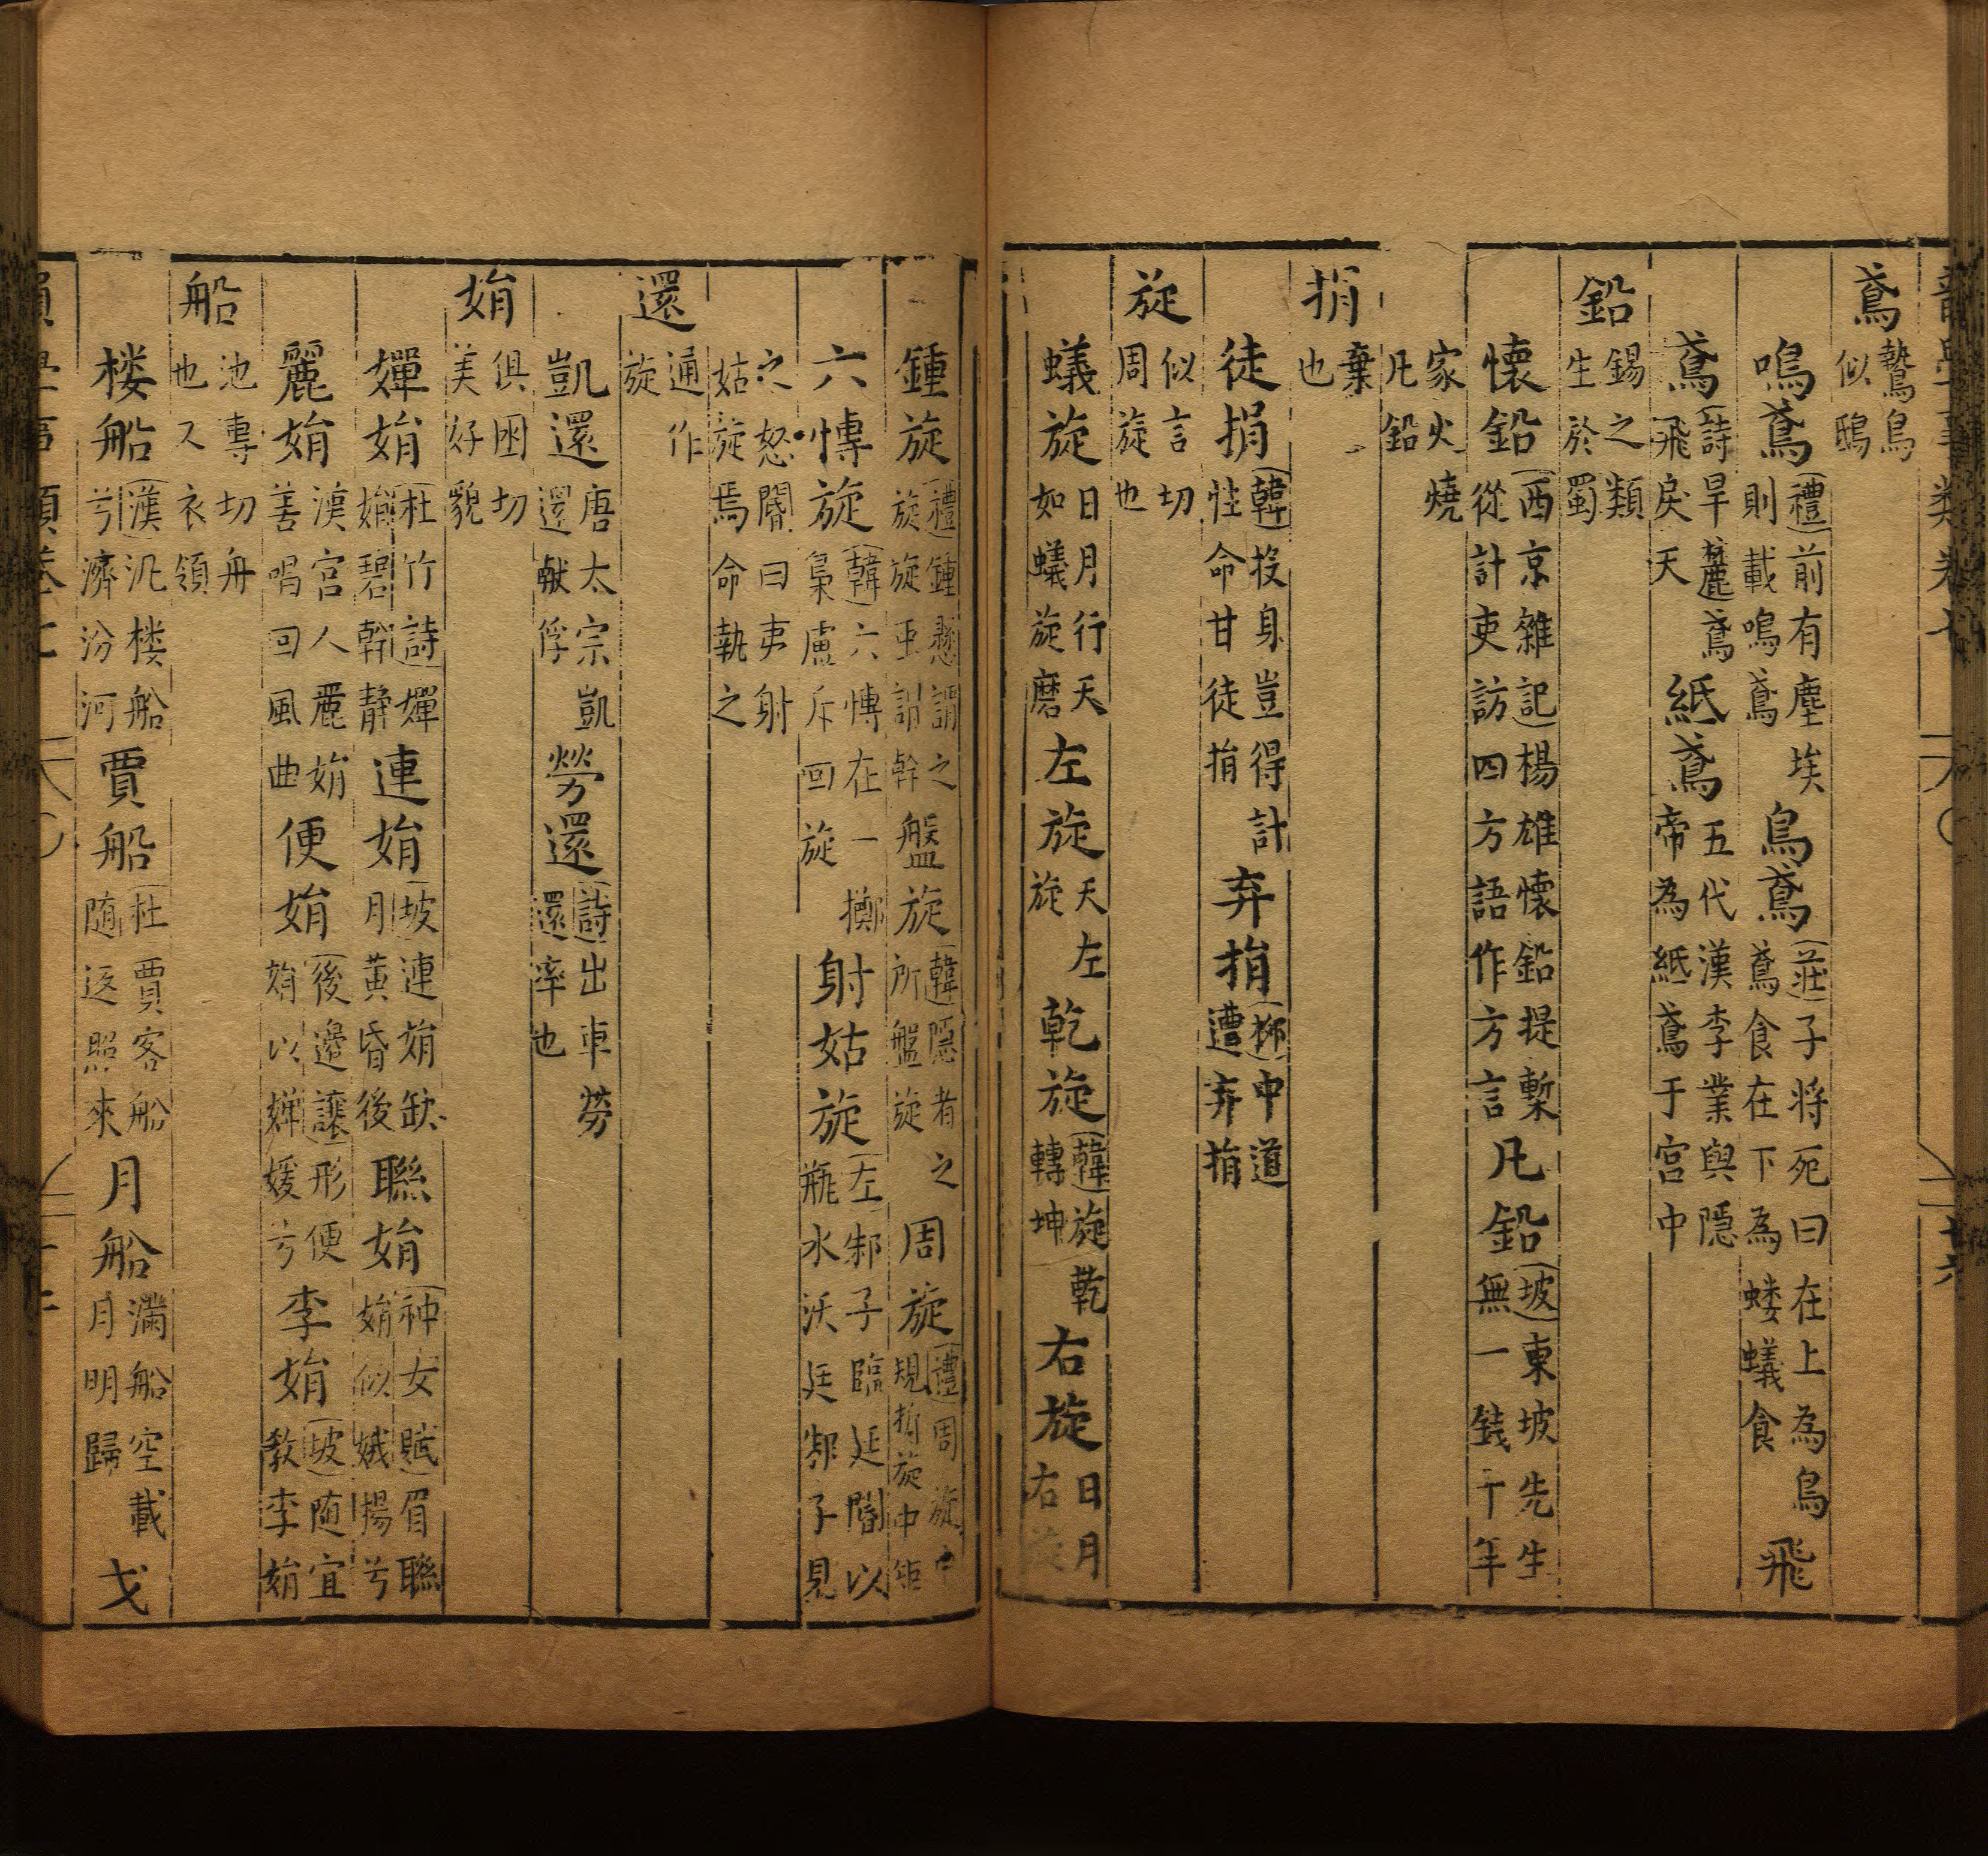 鳶鷙鳥似鴟
鳴鳶禮前有塵埃則載鳴鳶烏鳶莊子將死曰在上為烏鳶食在下為螻蟻食飛
鳶詩旱麓鳶飛戾天紙鳶五代漢李業與隱帝為紙鳶于宮中
鉛錫之類生於蜀
懷鉛西京雜記楊雄懷鉛提槧從計吏訪四方語作方言凡鉛坡東坡先生無一錢十年
家火燒凡鉛
捐棄也
徒捐韓投身豈得計性命甘徒捐弃捐柳中道遭弃捐
旋似言切周旋也
蟻旋日月行天如蟻旋磨左旋天左旋乾旋韓旋乾轉坤右旋日月右
鍾旋禮鍾懸謂之旋旋虫謂幹盤旋韓隱者之所盤旋周旋禮周旋中規折旋中矩
六博旋韓六博在一擲梟盧斥回旋射姑旋左邾子臨廷閽以瓶水沃廷邾子見
之怒閽曰夷射姑旋焉命執之
還通作旋
凱還唐太宗凱還獻俘勞還詩出車勞還率也
娟俱困切美好貌
嬋娟杜竹詩嬋娟碧幹靜連娟坡連娟缺月黃昏後聯娟神女賦眉聯娟似娥揚兮
麗娟漢宮人麗娟善唱回風曲便娟後邊讓形便娟以嬋媛兮李娟坡随宜教李娟
船池專切舟也又衣領
楼船漢汎楼船兮濟汾河賈船杜賈客船随返照來月船滿船空載月明歸戈